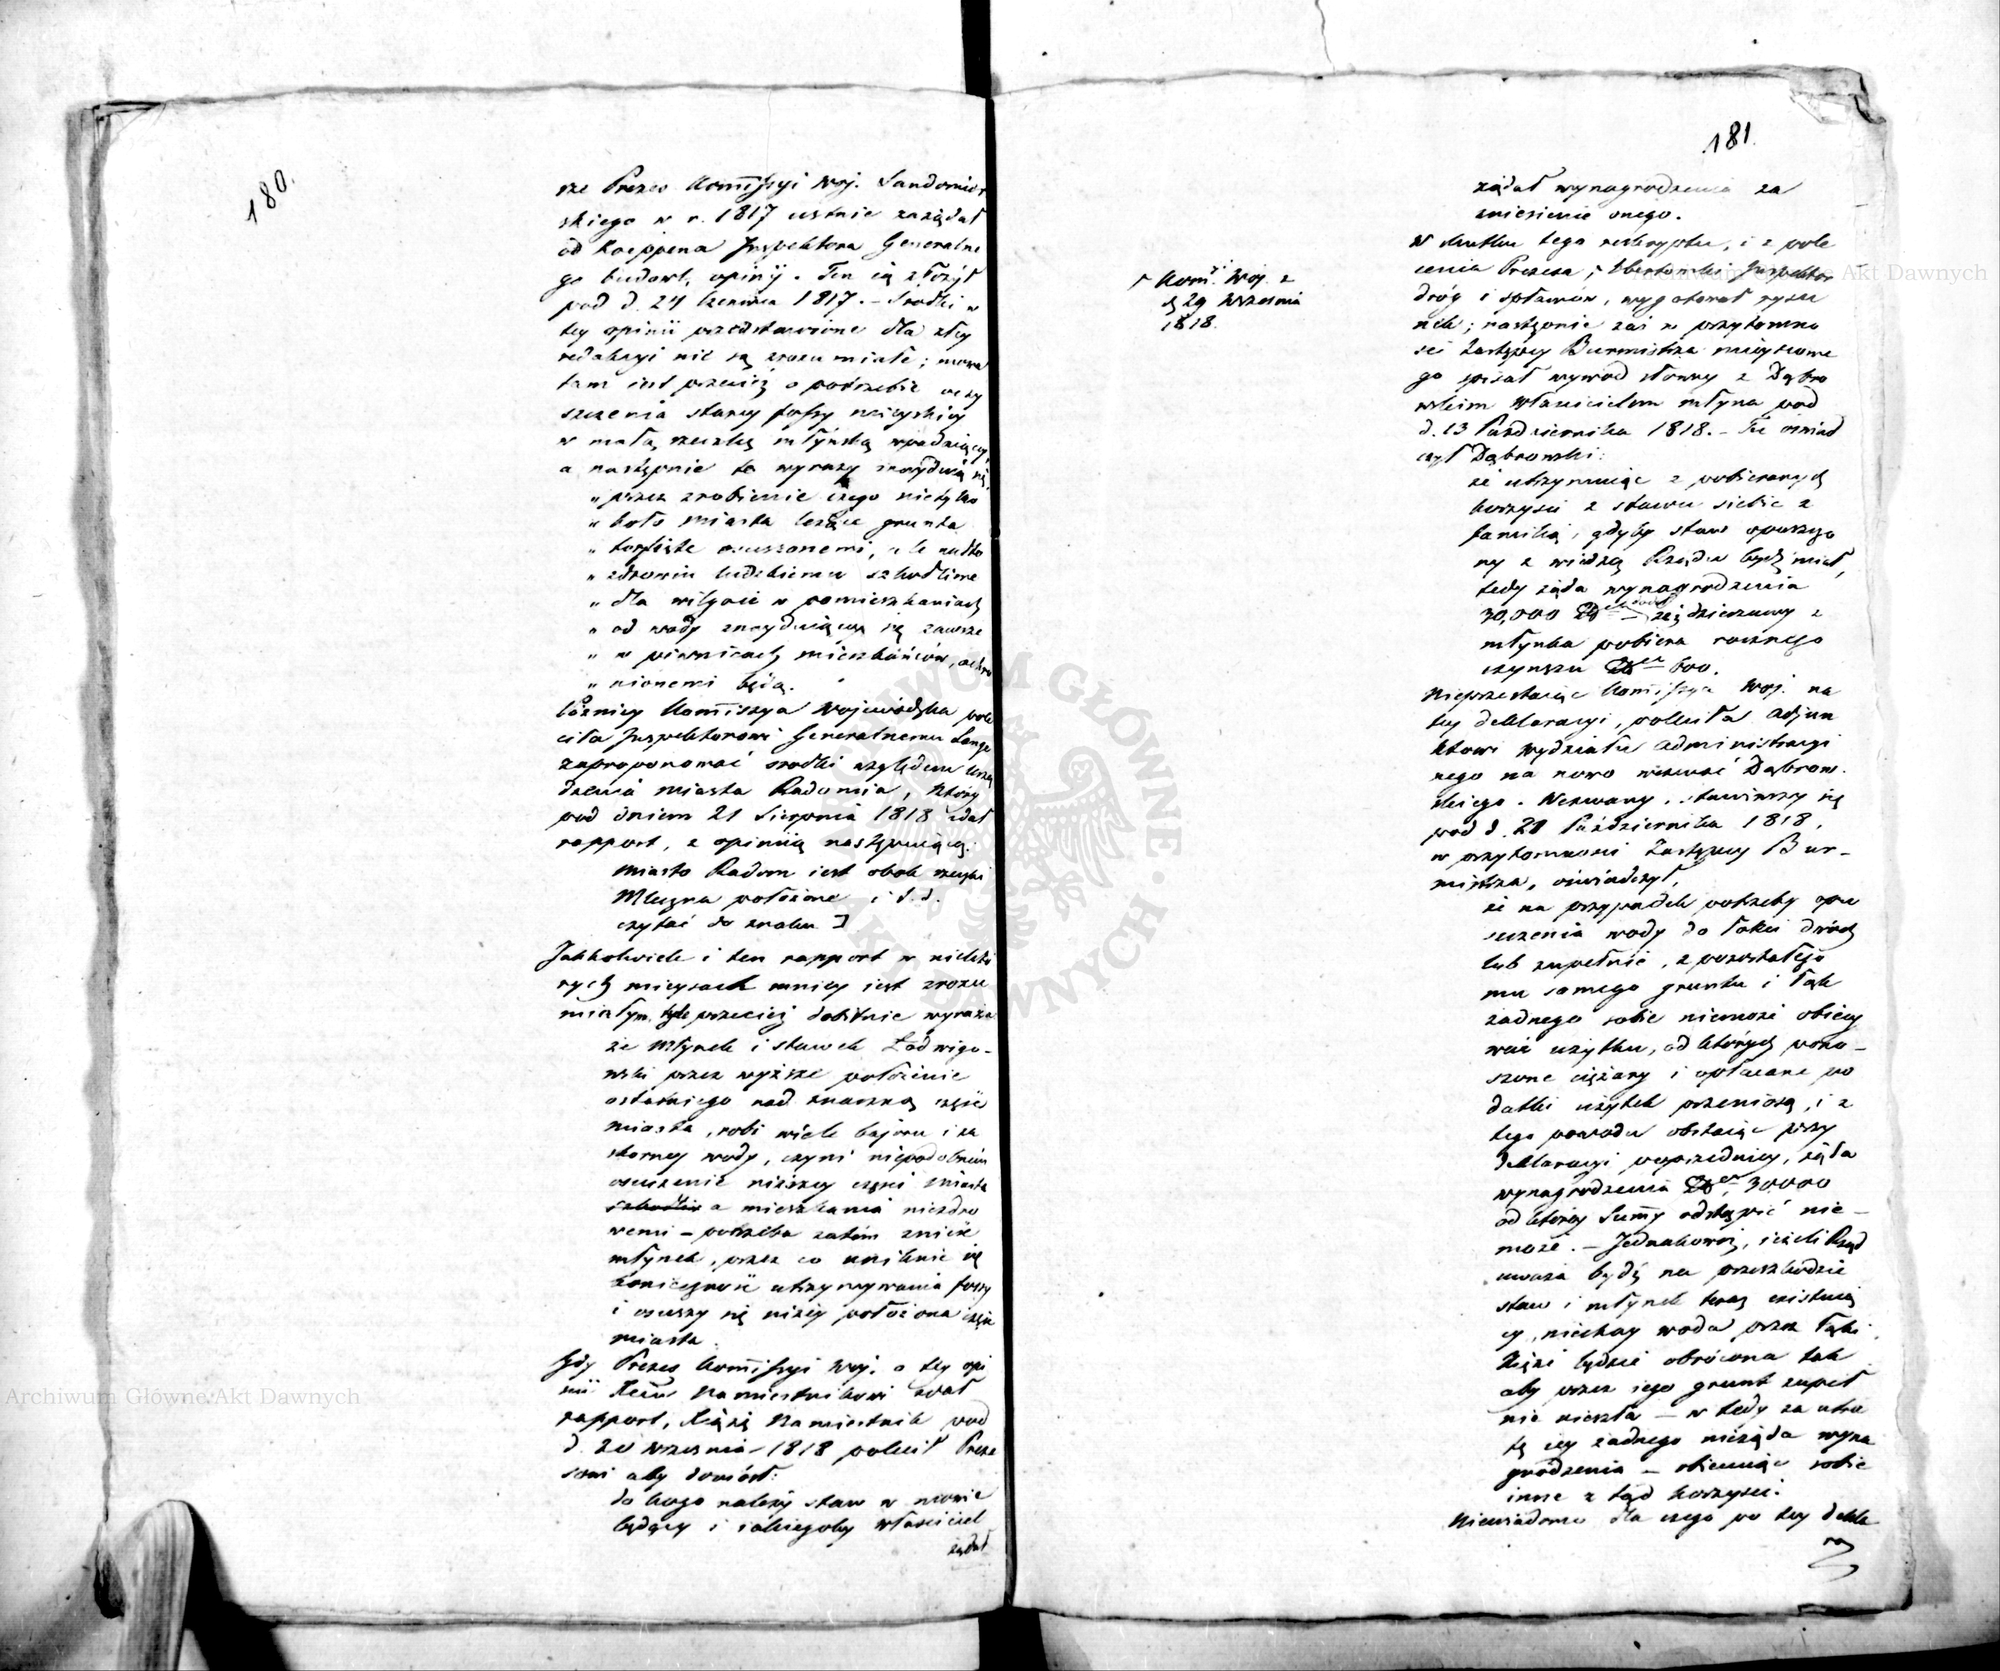 180.
rze Prezes Kommissyi Woj. Sandomir
skiego w r. 1817 ustnie zażądał
od Koeppena Inspektora Generalne
go budowl. opinij. Ten ią złożył
pod d. 24 Czerwca 1817. – Srodki w
tey opinii przedstawione dla złey
redakcyi nie są zrozumiałe; mowa
tam iest przecież o potrzebie oczy
szczenia starey fossy mieyskiey
w małą rzeczkę młyńską wpadaiącey,
a następnie te wyrazy znayduią się,
„ przez zrobienie czego nietylko
„ koło miasta leżące grunta
„ torfiste osuszonemi, ale nadto
„ zdrowiu ludzkiemu szkodliwe
„ dla wilgoci w pomieszkaniach
„ od wody znayduiącey się zawsze
„ w piwnicach mieszkańców, ochro
„ nionemi będą.
Później Kommissya Wojewódzka pole
ciła Inspektorowi Generalnemu Lange
zaproponować srodki względem urzą
dzenia miasta Radomia, który
pod dniem 21 Sierpnia 1818 zdał
rapport, z opinią następuiącą:
Miasto Radom iest obok rzeczki
Mleczna położone i t. d.
czytać do znaku ]
Jakkolwiek i ten rapport w niektó
rych mieyscach mniey iest zrozu
miałym, tyle przecież dobitnie wyraża
że Młynek i stawek Ładwigo-
wski przez wyższe położenie
ostatniego nad znaczną część
miasta, robi wiele bajoru i za
stoiney wody, czyni niepodobnem
osuszenie niższey części miasta
a mieszkania niezdro
wemi – potrzeba zatém znieść
młynek, przez co uniknie się
konieczność utrzymywania fossy
i osuszy się niżey położona część
miasta.
Gdy Prezes Kommissyi Woj. o tey opi
nii Xciu Namiestnikowi zdał
rapport, Xiążę Namiestnik pod
d. 20 Września 1818 polecił Preze
sowi aby doniósł:
do kogo należy staw w mowie
będący i iakiegoby właściciel
żądał
181.
żądał wynagrodzenia za
zniesienie onego.
W skutku tego reskryptu, i z pole
cenia Prezesa, Inspektor
dróg i spławów, wygotował rysu
nek; następnie zaś w przytomno
ści Zastępcy Burmistrza mieyscowe
go spisał wywod słowny z Dąbro
wskim właścicielem młyna pod
d. 13 Października 1818. – Tu oświad
czył Dąbrowski:
że utrzymuiąc z pobieranych
korzyści z stawu siebie z
familią, gdyby staw opuszczo
ny z wiedzą Rządu bydź miał,
tedy żąda wynagrodzenia
30,000 – że dzierżawy z
młynka pobiera rocznego
czynszu 600.
Nieprzestaiąc Kommissya Woj. na
tey deklaracyi, poleciła Adjun
ktowi Wydziału Administracyi
nego na nowo wezwać Dąbrow.
skiego. Wezwany, stawiwszy się
pod d. 21 Października 1818,
w przytomności Zastępcy Bur-
mistrza, oświadczył,
że na przypadek potrzeby opu
szczenia wody do łąki
lub zupełnie, z pozostałego
mu samego gruntu i łąk
żadnego sobie niemoże obiecy
wać użytku, od których pono-
szone ciężary i opłacane po
datki użytek przeniosą, i z
tego powodu obstaiąc przy
deklaracyi poprzedniey, żąda
wynagrodzenia 30,000
od którey Summy odstąpić nie-
może. – Jednakowoż, ieżeli Rząd
uważa bydź na przeszkodzie
staw i młynek teraz existuią
cy, niechay woda przez łąki
Xięże będzie obrócona tak
aby przez iego grunt zupeł
nie nieszła – w tedy za utra
tę iey żadnego nieżąda wyna
grodzenia – obiecuiąc sobie
inne z tąd korzyści.
Niewiadomo dla czego po tey dekla
ra
Kom. Woj. z
d. 29 Września
1818.
Archiwum Główne Akt Dawnych
Archiwum Główne Akt Dawnych
ARCHIWUM GŁÓWNE · AKT DAWNYCH ·